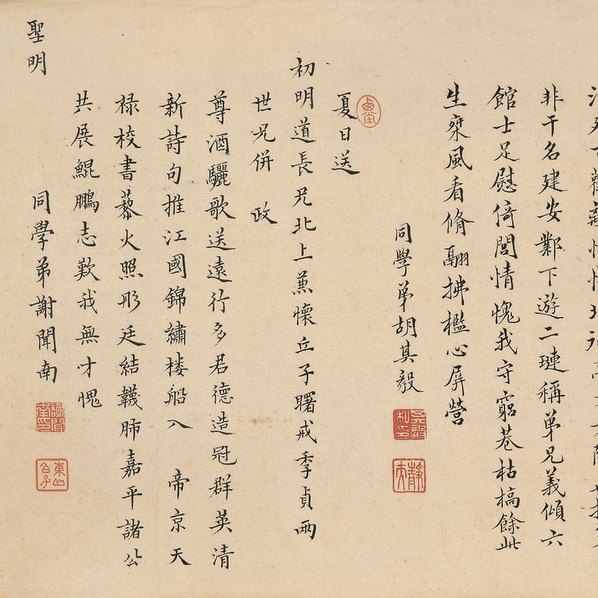 非干名建安鄴下遊二璉稱弟兄義傾六
館士足慰倚閭情愧我守窮巷枯槁餘此
生椉風看脩翮拂檻心屏營
同學弟胡其毅
夏日送
初明道長兄北上蒹懷丘子曙戒季貞兩
世兄併政
尊酒驪歌送遠行多君德造冠群英清
新詩句推江國錦繡楼船入 帝京天
祿校書藜火照彤廷結韈肺嘉平諸公
共展鯤鵬志歎我無才愧
聖明
同學弟謝聞南
東山公子